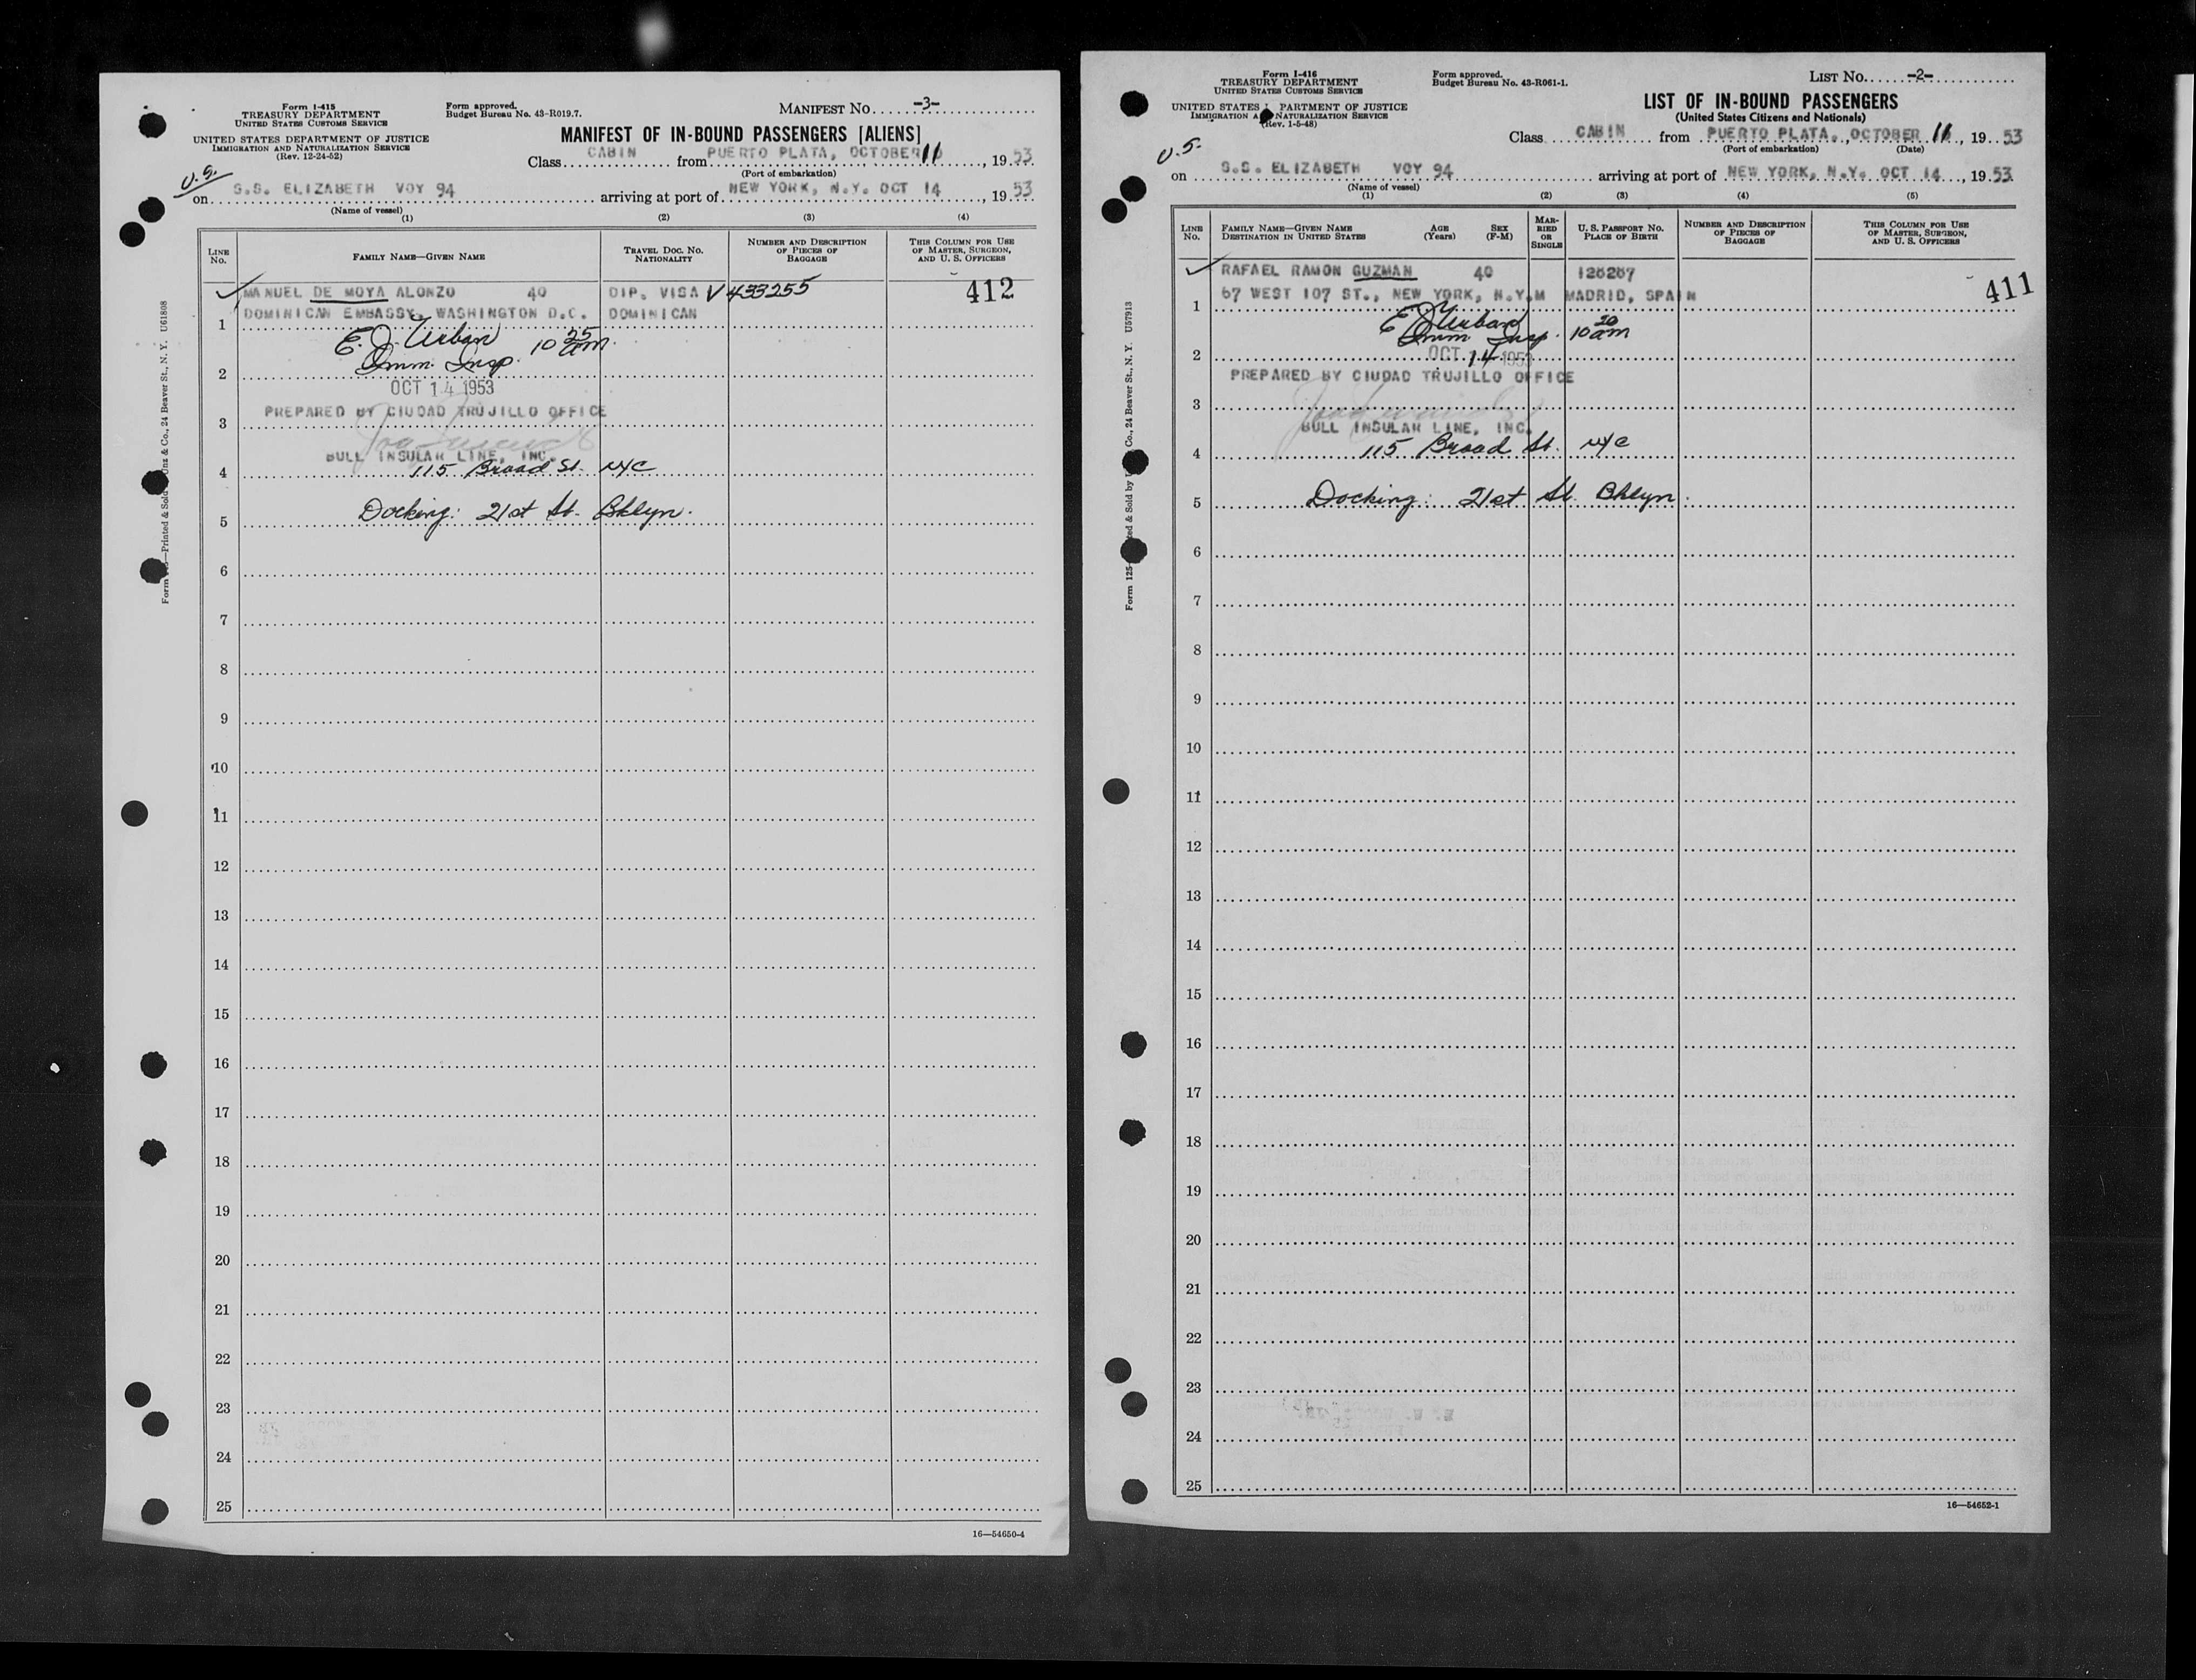 Form I-415
TREASURY DEPARTMENT
UNITED STATES CUSTOMS SERVICE
UNITED STATES DEPARTMENT OF JUSTICE
IMMIGRATION AND NATURALIZATION SERVICE
(Rev. 12-24-52)
Form approved.
Budget Bureau No. 43-R019.7.
MANIFEST NO. -3-
MANIFEST OF IN-BOUND PASSENGERS [ALIENS]
Class CABIN from PUERTO PLATA, OCTOBER 11, 19 53
(Port of embarkation)
U.S.
on S.S. ELIZABETH VOY 94 arriving at port of NEW YORK, N.Y. OCT 14, 19 53
(Name of vessel)
(1) (2) (3) (4)
LINE NO. FAMILY NAME—GIVEN NAME TRAVEL DOC. NO. NATIONALITY NUMBER AND DESCRIPTION OF PIECES OF BAGGAGE THIS COLUMN FOR USE OF MASTER, SURGEON, AND U. S. OFFICERS
MANUEL DE MOYA ALONZO 40 DIP. VISA V 433255 412
1 DOMINICAN EMBASSY, WASHINGTON D.C. DOMINICAN
E. J. Urban 10 25 am
2 Imm. Insp.
OCT 14 1953
PREPARED BY CIUDAD TRUJILLO OFFICE
3
BULL INSULAR LINE, INC.
4 115 Broad St. NYC
5 Docking: 21st St. Bklyn.
6
7
8
9
10
11
12
13
14
15
16
17
18
19
20
21
22
23
24
25
16—54650-4
Printed & Sold by Unz & Co., 24 Beaver St., N. Y. U61808
Form I-416
TREASURY DEPARTMENT
UNITED STATES CUSTOMS SERVICE
UNITED STATES DEPARTMENT OF JUSTICE
IMMIGRATION AND NATURALIZATION SERVICE
(Rev. 1-5-48)
Form approved.
Budget Bureau No. 43-R061-1.
LIST NO. -2-
LIST OF IN-BOUND PASSENGERS
(United States Citizens and Nationals)
Class CABIN from PUERTO PLATA, OCTOBER 11, 19 53
(Port of embarkation) (Date)
U.S.
on S.S. ELIZABETH VOY 94 arriving at port of NEW YORK, N.Y. OCT 14, 19 53
(Name of vessel)
(1) (2) (3) (4) (5)
LINE NO. FAMILY NAME—GIVEN NAME DESTINATION IN UNITED STATES AGE (Years) SEX (F-M) MARRIED OR SINGLE U. S. PASSPORT NO. PLACE OF BIRTH NUMBER AND DESCRIPTION OF PIECES OF BAGGAGE THIS COLUMN FOR USE OF MASTER, SURGEON, AND U. S. OFFICERS
RAFAEL RAMON GUZMAN 40 126267 411
1 67 WEST 107 ST., NEW YORK, N.Y. M MADRID, SPAIN
E. J. Urban
Imm. Insp. 10 20 am
2 OCT 14 1953
PREPARED BY CIUDAD TRUJILLO OFFICE
3
BULL INSULAR LINE, INC.
4 115 Broad St. NYC
5 Docking: 21st St. Bklyn.
6
7
8
9
10
11
12
13
14
15
16
17
18
19
20
21
22
23
24
25
16—54652-1
Co., 24 Beaver St., N. Y. U57913